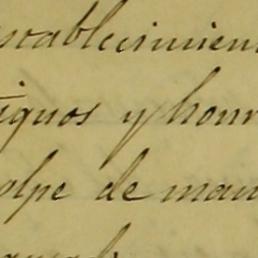 stablecimien
tiguos y honr
olpe de man